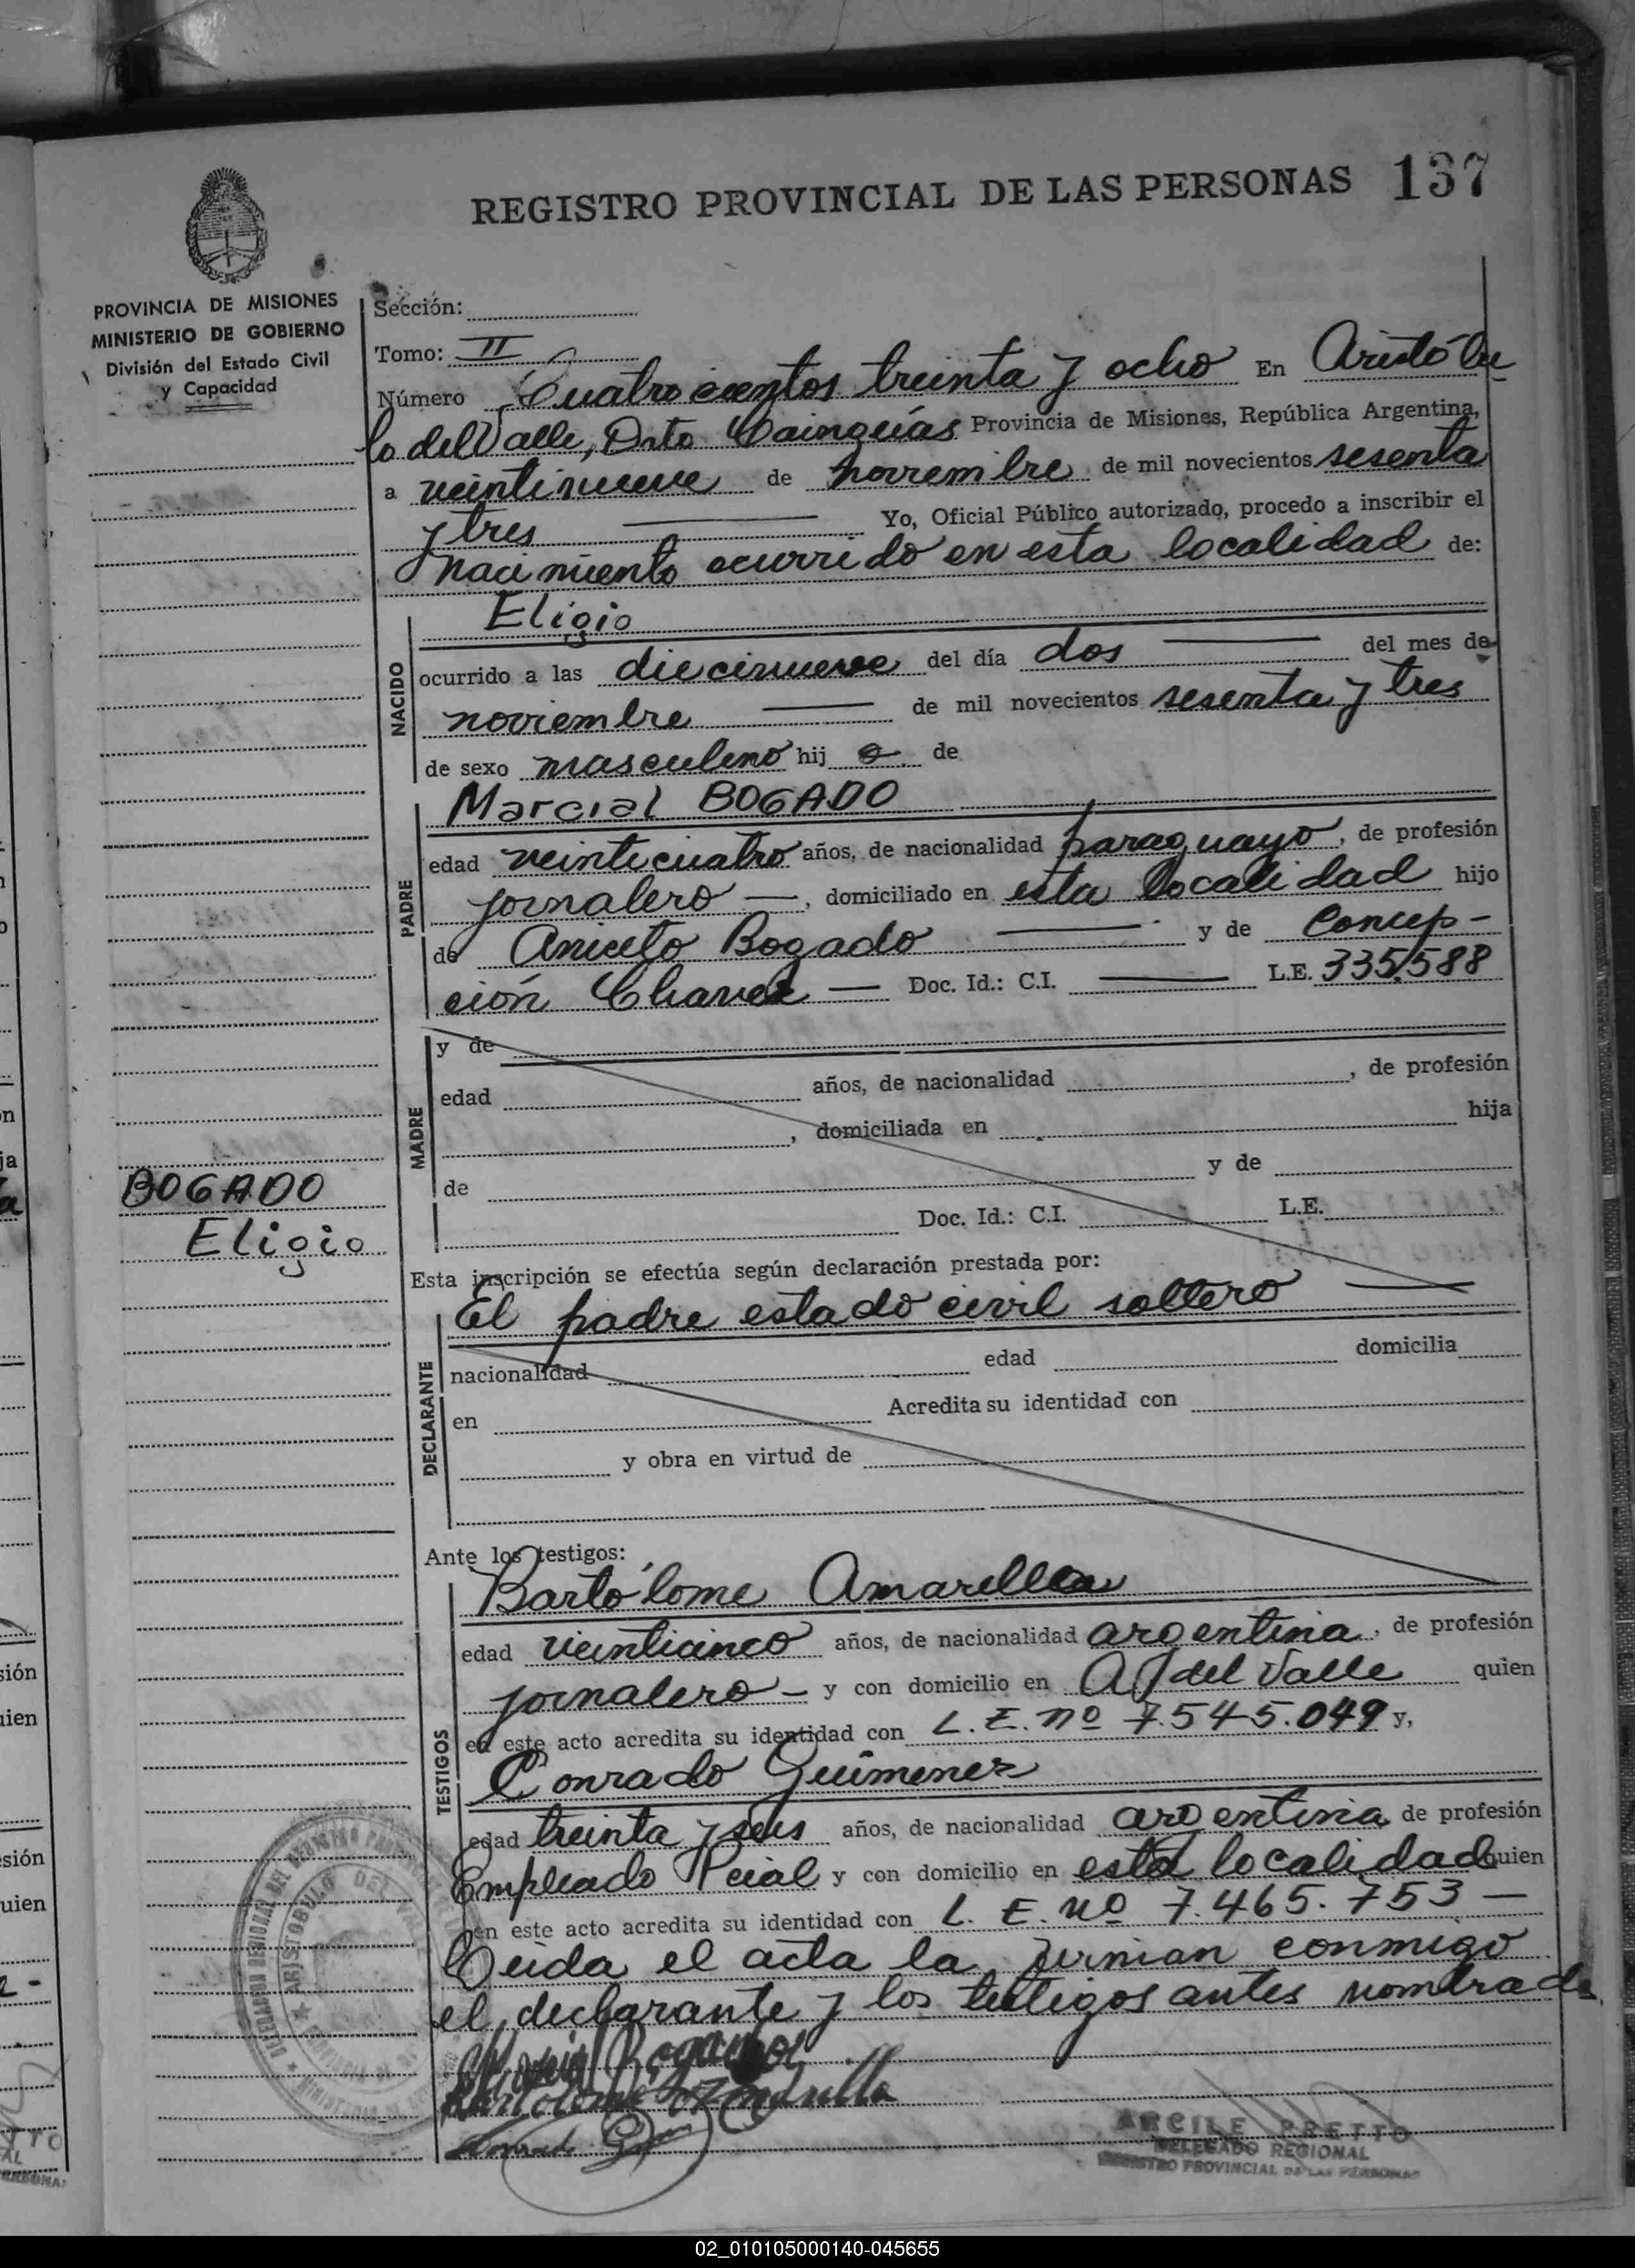 REGISTRO PROVINCIAL DE LAS PERSONAS 137
PROVINCIA DE MISIONES
MINISTERIO DE GOBIERNO
División del Estado Civil
y Capacidad
Sección:
Tomo: II
Número Cuatrocientos treinta y ocho En Aristóbu
lo del Valle, Dto Cainguás Provincia de Misiones, República Argentina,
a veintinueve de noviembre de mil novecientos sesenta
y tres Yo, Oficial Público autorizado, procedo a inscribir el
nacimiento ocurrido en esta localidad de:
NACIDO
Eligio
ocurrido a las diecinueve del día dos del mes de
noviembre de mil novecientos sesenta y tres
de sexo masculino hij o de
PADRE
Marcial BOGADO
edad veinticuatro años, de nacionalidad paraguayo, de profesión
jornalero —, domiciliado en esta localidad hijo
de Aniceto Bogado y de Concep-
ción Chavez — Doc. Id.: C.I. — L.E. 335,588
MADRE
y de
edad años, de nacionalidad , de profesión
, domiciliada en hija
de y de
Doc. Id.: C.I. L.E.
BOGADO
Eligio
Esta inscripción se efectúa según declaración prestada por:
DECLARANTE
El padre estado civil soltero —
nacionalidad edad domicilia
en Acredita su identidad con
y obra en virtud de
Ante los testigos:
TESTIGOS
Bartólome Amarilla
edad veinticinco años, de nacionalidad argentina, de profesión
jornalero — y con domicilio en A del Valle quien
en este acto acredita su identidad con L.E. nº 7.545.049 y,
Conrado Guimenez
edad treinta y seis años, de nacionalidad argentina de profesión
Empleado Pcial y con domicilio en esta localidad quien
en este acto acredita su identidad con L. E. nº 7.465.753 —
Leida el acta la firman conmigo
el declarante y los testigos antes nombrados
Marcial Bogado
Bartolome Amarilla
ARCILE PRETTO
DELEGADO REGIONAL
REGISTRO PROVINCIAL DE LAS PERSONAS
02_010105000140-045655